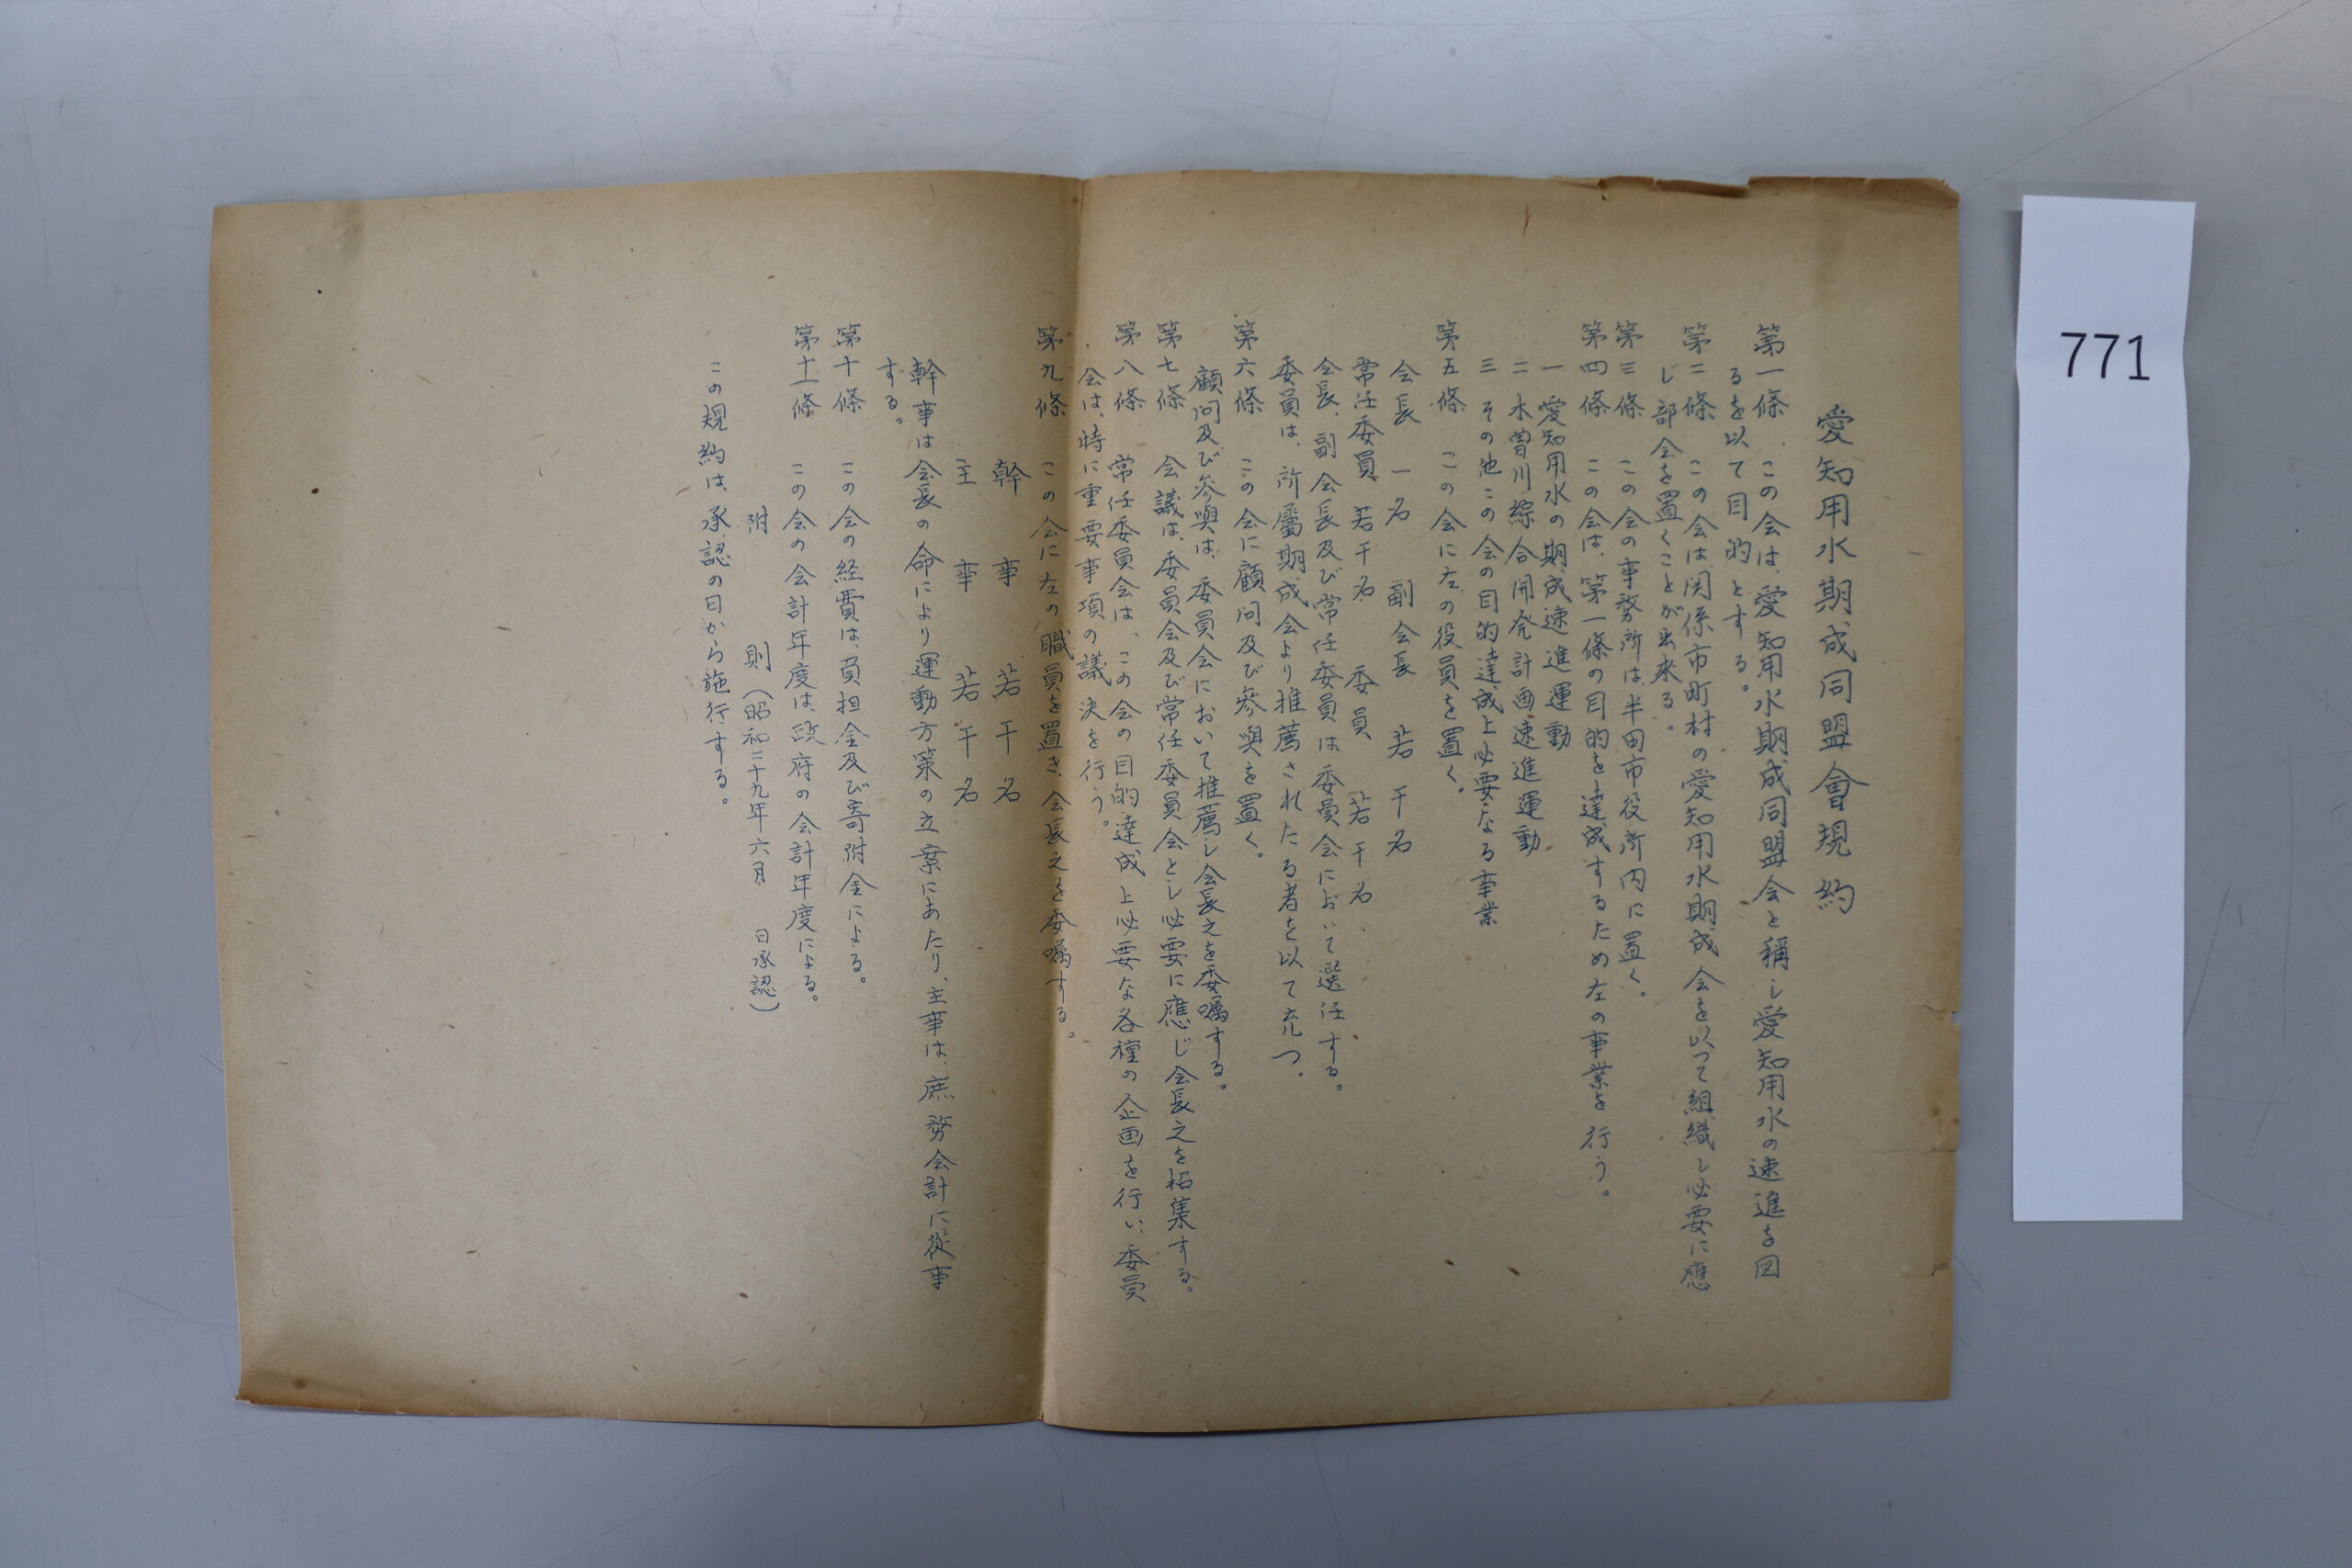 愛知用水期成同盟會規約
第一條　この会は、愛知用水期成同盟会と稱し愛知用水の速進を図
るを以て目的とする。
第二條　この会は関係市町村の愛知用水期成会を以つて組織し必要に應
じ部会を置くことが出来る。
第三條　この会の事務所は半田市役所内に置く。
第四條　この会は、第一條の目的を達成するため左の事業を行う。
一　愛知用水の期成速進運動
二　木曽川綜合開発計画速進運動
三　その他この会の目的達成上必要なる事業
第五條　この会に左の役員を置く。
会長　一名　副会長　若干名
常任委員　若干名　委員　若干名、
会長、副会長及び常任委員は委員会において選任する。
委員は、所屬期成会より推薦されたる者を以て充つ。
第六條　この会に顧问及び參與を置く。
顧问及び参與は、委員会において推薦し会長之を委嘱する。
第七條　会議は、委員会及び常任委員会とし必要に應じ会長之を招集する。
第八條　常任委員会は、この会の目的達成上必要な各種の企画を行い、委員
会は、時に重要事項の議決を行う。
第九條　この会に左の職員を置き、会長之を委嘱する。
幹事　若干名
主事　若干名
幹事は会長の命により運動方策の立案にあたり、主事は、庶務会計に従事
する。
第十條　この会の経費は、負担金及び寄附金による。
第十一條　この会の会計年度は政府の会計年度による。
附　則（昭和二十九年六月　日承認）
この規約は、承認の日から施行する。
771